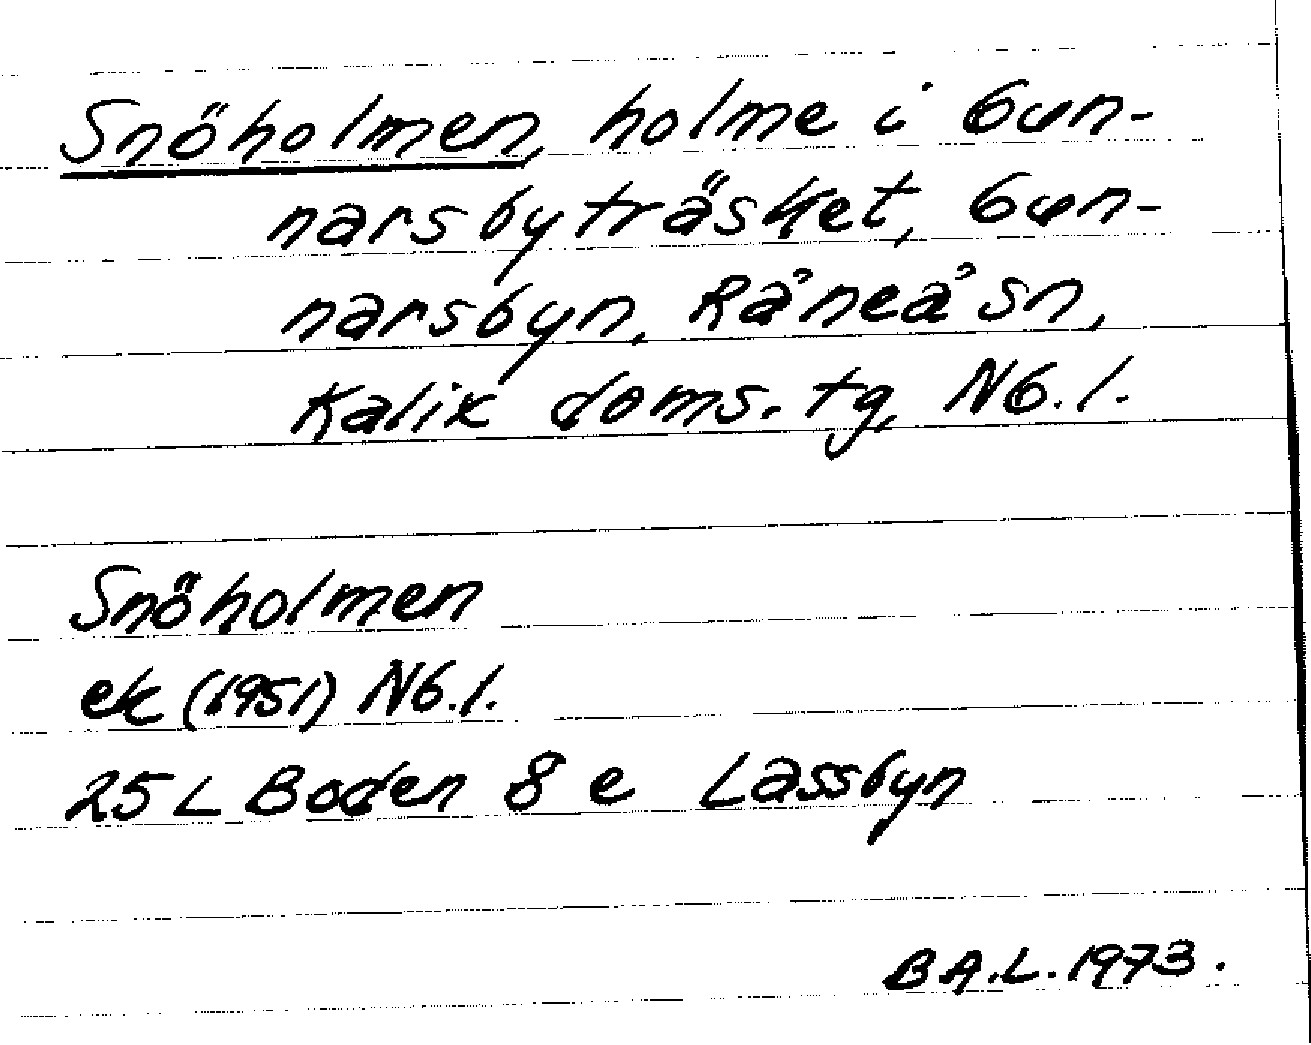 Snöholmen, holme i Gun-
narsbyträsket, Gun-
narsbyn, Råneå sn,
Kalix doms. tg, Nb. l.
Snöholmen
ek (1951) Nb. l.
25 L Boden 8 e Lassbyn
B A.L. 1973.